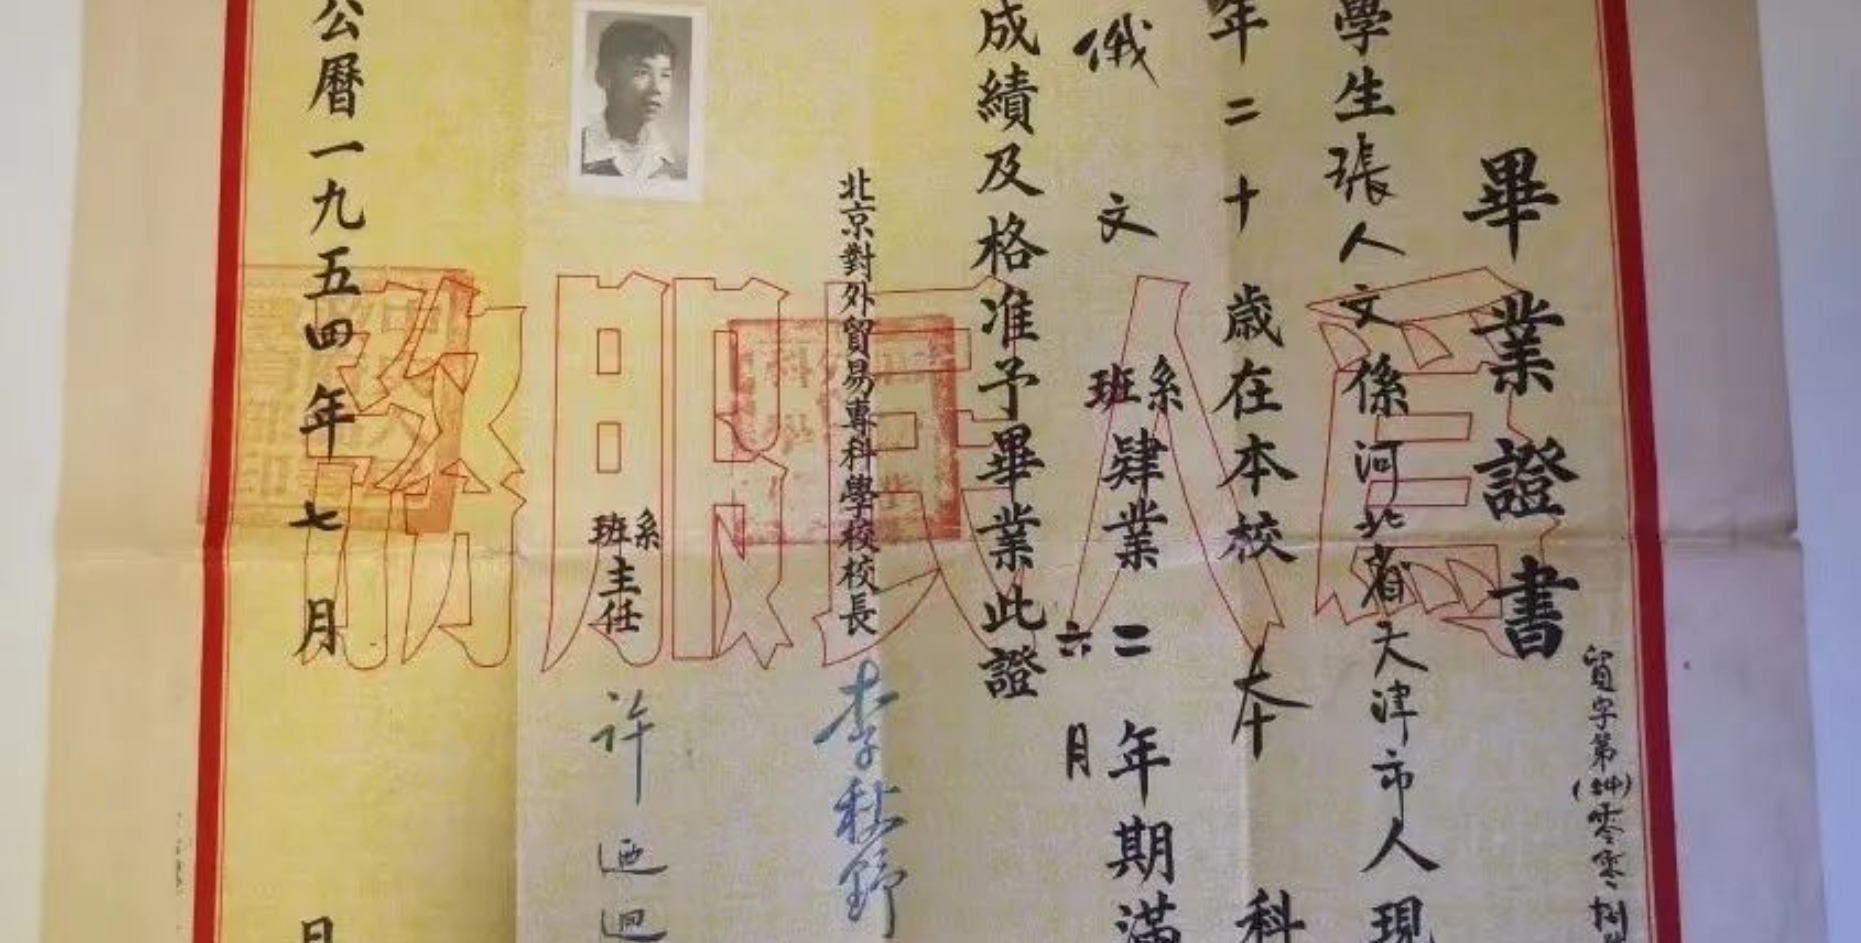 畢業證書
貿字第(54)零零
學生張人文係河北省天津市人現
年二十歲在本校本科
俄文系班肄業二年期滿
六月
成績及格准予畢業此證
北京對外貿易專科學校校長李秋野
系班主任許迺迴
公曆一九五四年七月日
爲人民服務